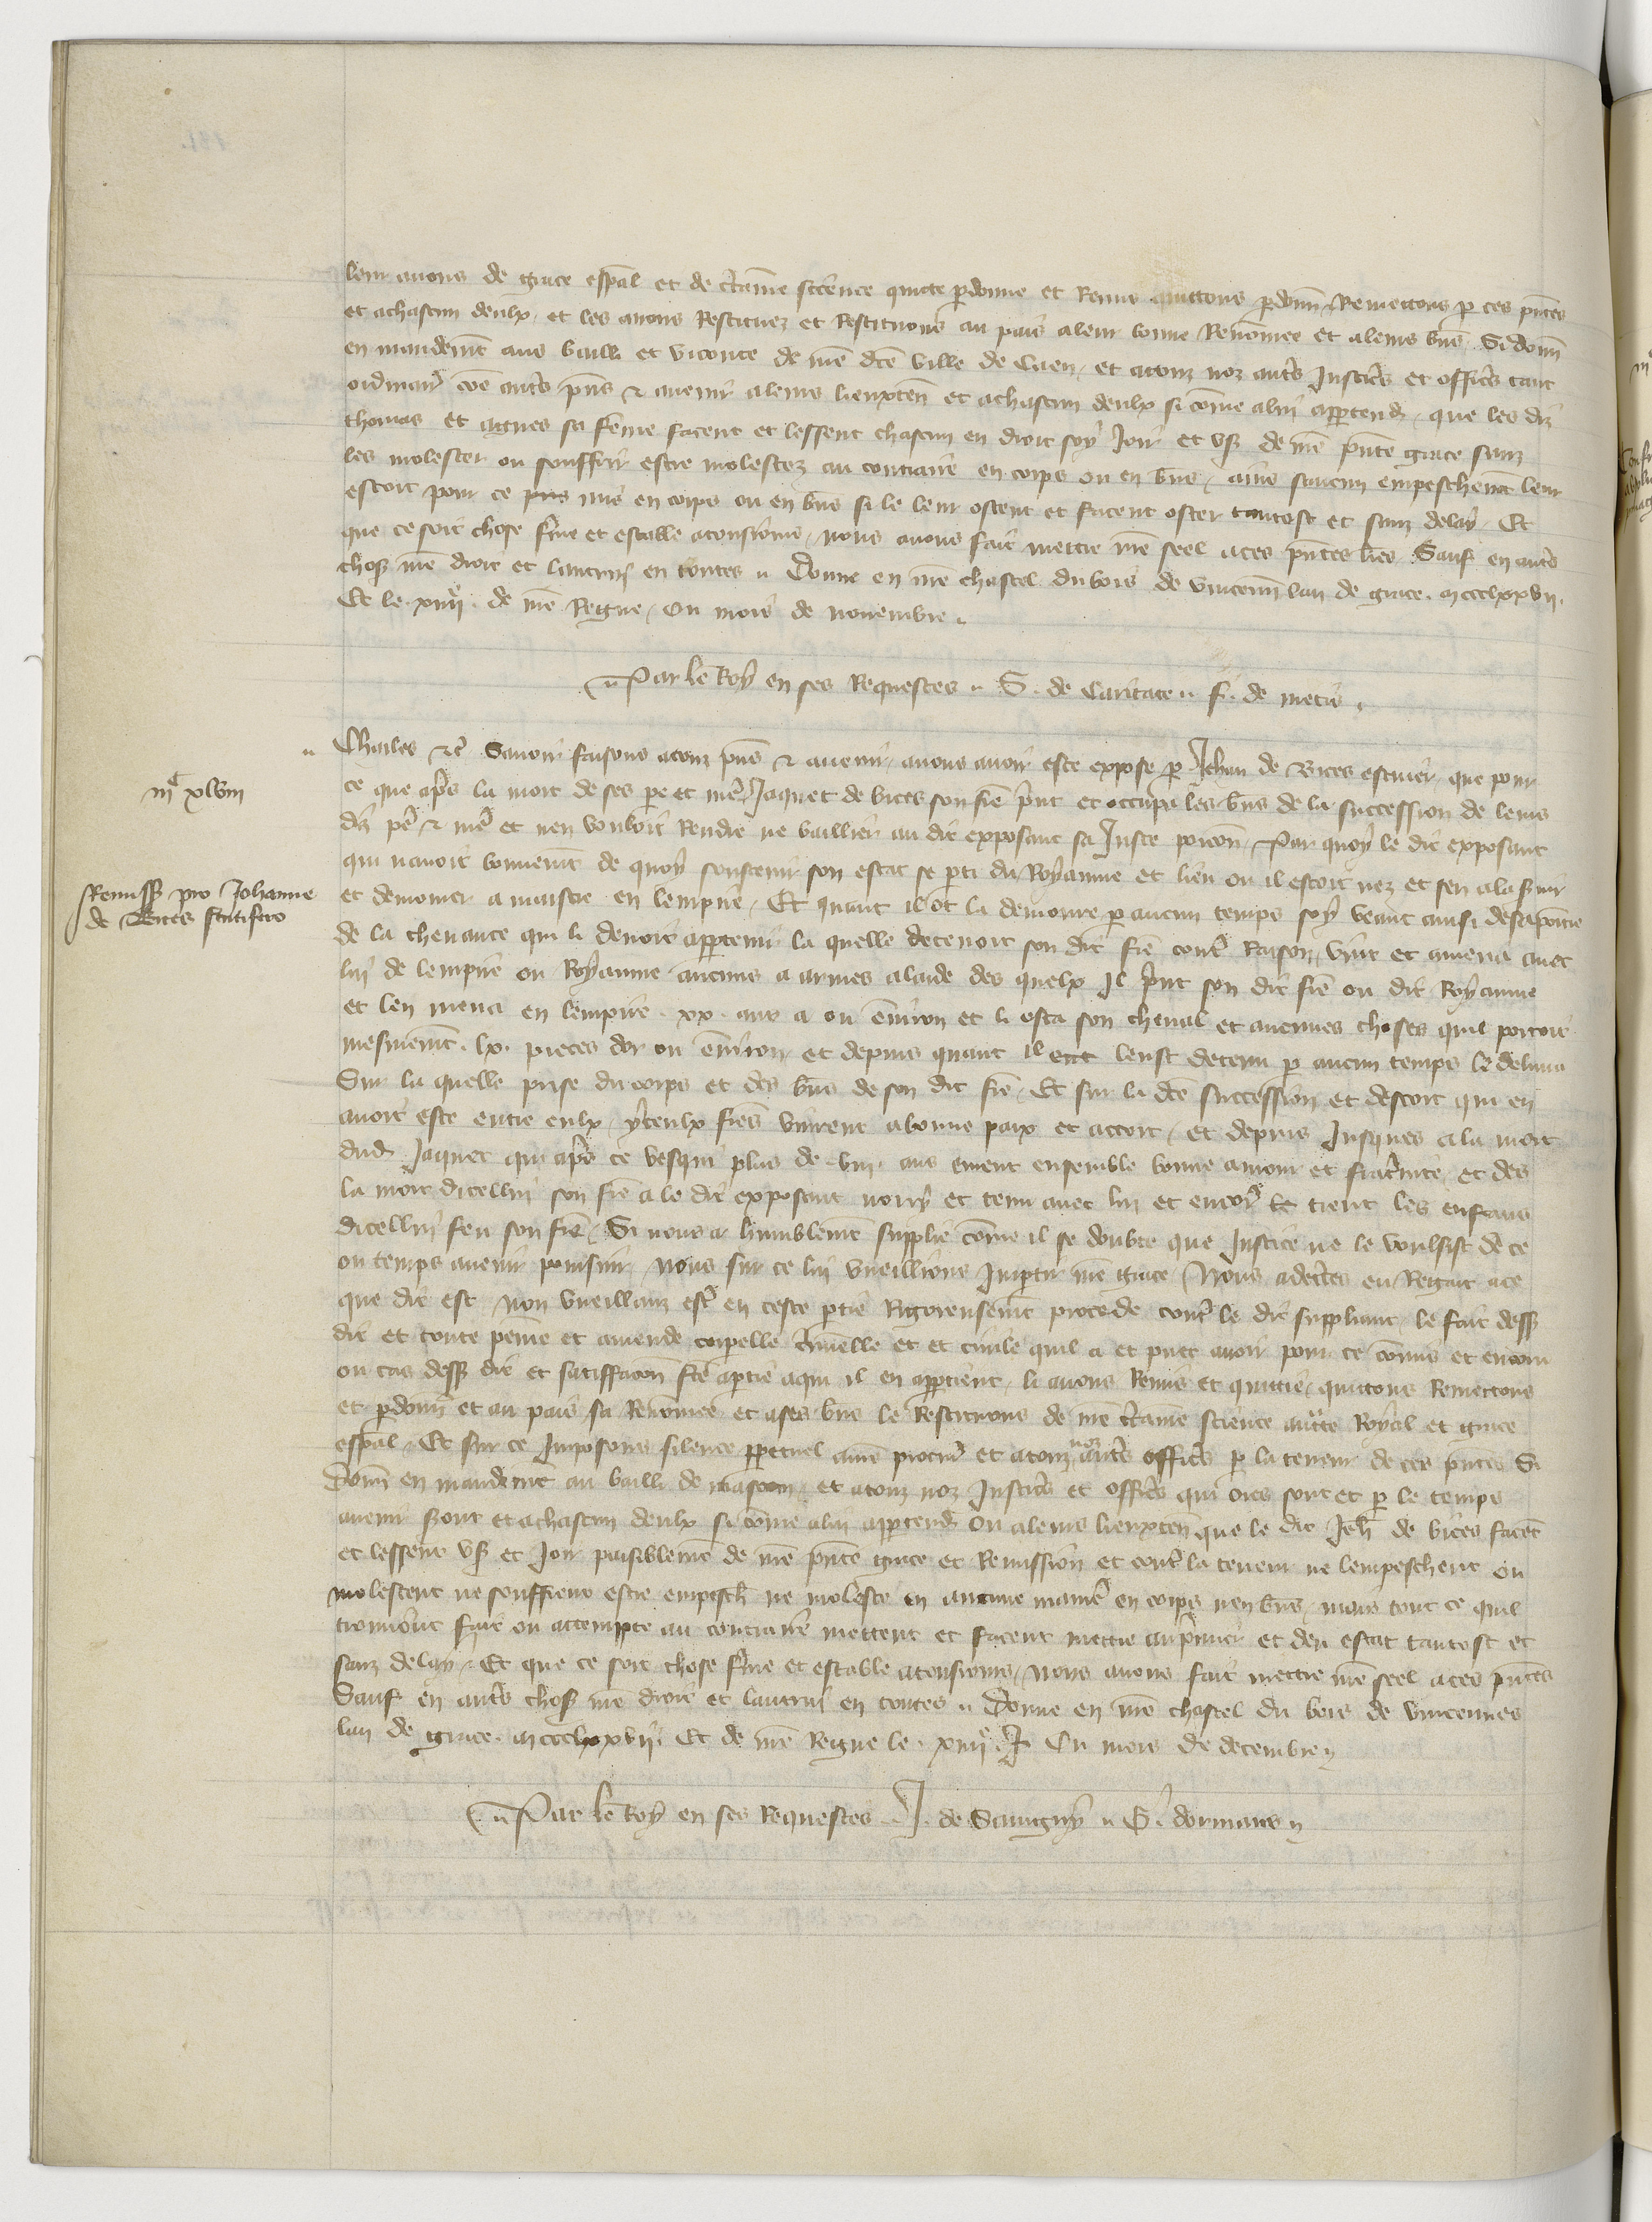 leur avons de grace esp̄al et de c̄taine science quitte p̄donne et Remis quittons p̄donn̄ Remettons p̄ ces p̄ntes
et achascun deulx et les avons Restituez et Restituons au pais a leur bonne Renōmee et a leurs biēs Si donn̄
en mandem̄t aus bailli et viconte de n̄re dc̄e ville de Caen et atouz noz aut̄s Justic̄s et offic̄s tant
ordinair̄ cōe aut̄s p̄ns & avenir a leurs lieuxten̄ et achascun deulx si cōme a lui app̄tendr̄ que les diz
thomas et agnes sa fēme facent et lessent chascun en droit soy Joir et us̄ de n̄re p̄nte grace sanz
les molester ou souffrir estre molestez au contraire en corps ou en biēs ains saucun empeschem̄t leur
estoit pour ce mis en corps ou en biēs si le leur ostent et facent oster tantost et sanz delay Et
que ce soit chose ferme et estable atousiours nous avons fait mettre n̄re seel a ces p̄ntes l̄res Sauf en aut̄s
chos̄ n̄re droit et lautrui en toutes Donne en n̄re chastel du bois de vincenn̄ lan de grace mccclxxvii
Et le xiiiie de n̄re Regne ou mois de novembre
Par le Roy en ses Requestes S. de Caritate f. de metis
Charles &c̄ Savoir faisons atouz p̄ns & avenir avons avoir este expose p̄ Jehan de Bices escuier que pour
ce que ap̄s la mort de ses pere et mer̄ Jaquet de bices son fr̄e p̄nt et occupa les biēs de la succession de leurs
diz per̄ & mer̄ et nen vouloit Rendre ne baillier au dit exposant sa Juste porcon̄ Par quoy le dit exposant
qui navoit bonnem̄t de quoy soustenir son estat se p̄ti du Royaume et lieu ou il estoit nez et sen ala s̄vir
et demourer a maistre en lempire Et quant il ot la demoure p̄ aucun temps soy veant ainsi
de la chevance qui li devoit app̄tenir la quelle detenoit son dit fr̄e cont̄ Raison vint et amena avec
lui de lempire ou Royaume aucuns a armes a laide des quelx Il p̄nt son dit fr̄e ou dit Royaume
et len mena en lempire xx ans a ou ēviron et li osta son cheval et aucunes choses quil portoit
mesmem̄t lx pieces dor ou ēviron et depuis quant il leust detenu p̄ aucun temps le delivra
Sur la quelle prise du corps et des biēs de son dit fr̄e Et sur la dc̄e succession et descort qui en
avoit este entre eulx yceulx fr̄es vindrent a bonne paix et accort et depuis Jusques a la mort
dud̄ Jaquet qui ap̄s ce vesqui plus de viii ans eurent ensemble bonne amour et frat̄nite et des
la mort dicellui son fr̄e a le dit exposant norry et tenu avec lui et encor̄ tient les enfans
dicellui feu son fr̄e Si nous a humblem̄t supplie cōme il se doubte que Justice ne le voulsist de ce
ou temps avenir poursuir nous sur ce lui vueillions Impartir n̄re grace Nous adec̄tes eu Regart a ce
que dit est Non vueillanz est̄ en ceste p̄tie Rigoreusem̄t procede cont̄ le dit suppliant le fait dess̄
dit et toute peine et amende corporelle c̄minelle et et civile quil a et puet avoir pour ce cōmis et encouru
ou cas dess̄ dit et satisfacon̄ fc̄e a p̄tie a qui il en app̄tient li avons Remis et quittie quittons Remettons
et p̄donn̄ et au pais sa Renōmee et a ses biēs le Restituons de n̄re c̄taine science auct̄e Royal et grace
esp̄al Et sur ce Imposons silence p̄petuel a n̄re procur̄ et atouz noz aut̄s offic̄s p̄ la teneur de ces p̄ntes Si
donn̄ en mandem̄t au bailli de mascon et atouz noz Justic̄s et offic̄s qui ores sont et p̄ le temps
avenir s̄ont et achascun deulx si cōme a lui app̄tendr̄ ou a leurs lieuxten̄ que le dit Jeh̄ de bices facēt
et lessent us̄ et Joir paisiblem̄t de n̄re p̄nte grace et Remission et cont̄ la teneur ne lempeschent ou
molestent ne seuffrent estre empesch̄ ne moleste en aucune manier̄ en corps nen biēs mais tout ce quil
trouv̄ont fait ou attempte au contraire mettent et facent mettre au p̄mier et deu estat tantost et
sanz delay Et que ce soit chose ferme et estable atousiours Nous avons fait mettre n̄re seel a ces p̄ntes
Sauf en aut̄s chos̄ n̄re droit et lautrui en toutes Donne en n̄re chastel du bois de vincennes
lan de grace mccclxxvii Et de n̄re Regne le xiiiie Ou mois de decembre
Par le Roy en ses Requestes J. de Savigny G. dormans
iiic xlviii
Remiss̄ pro Johanne
de Bices scutifero